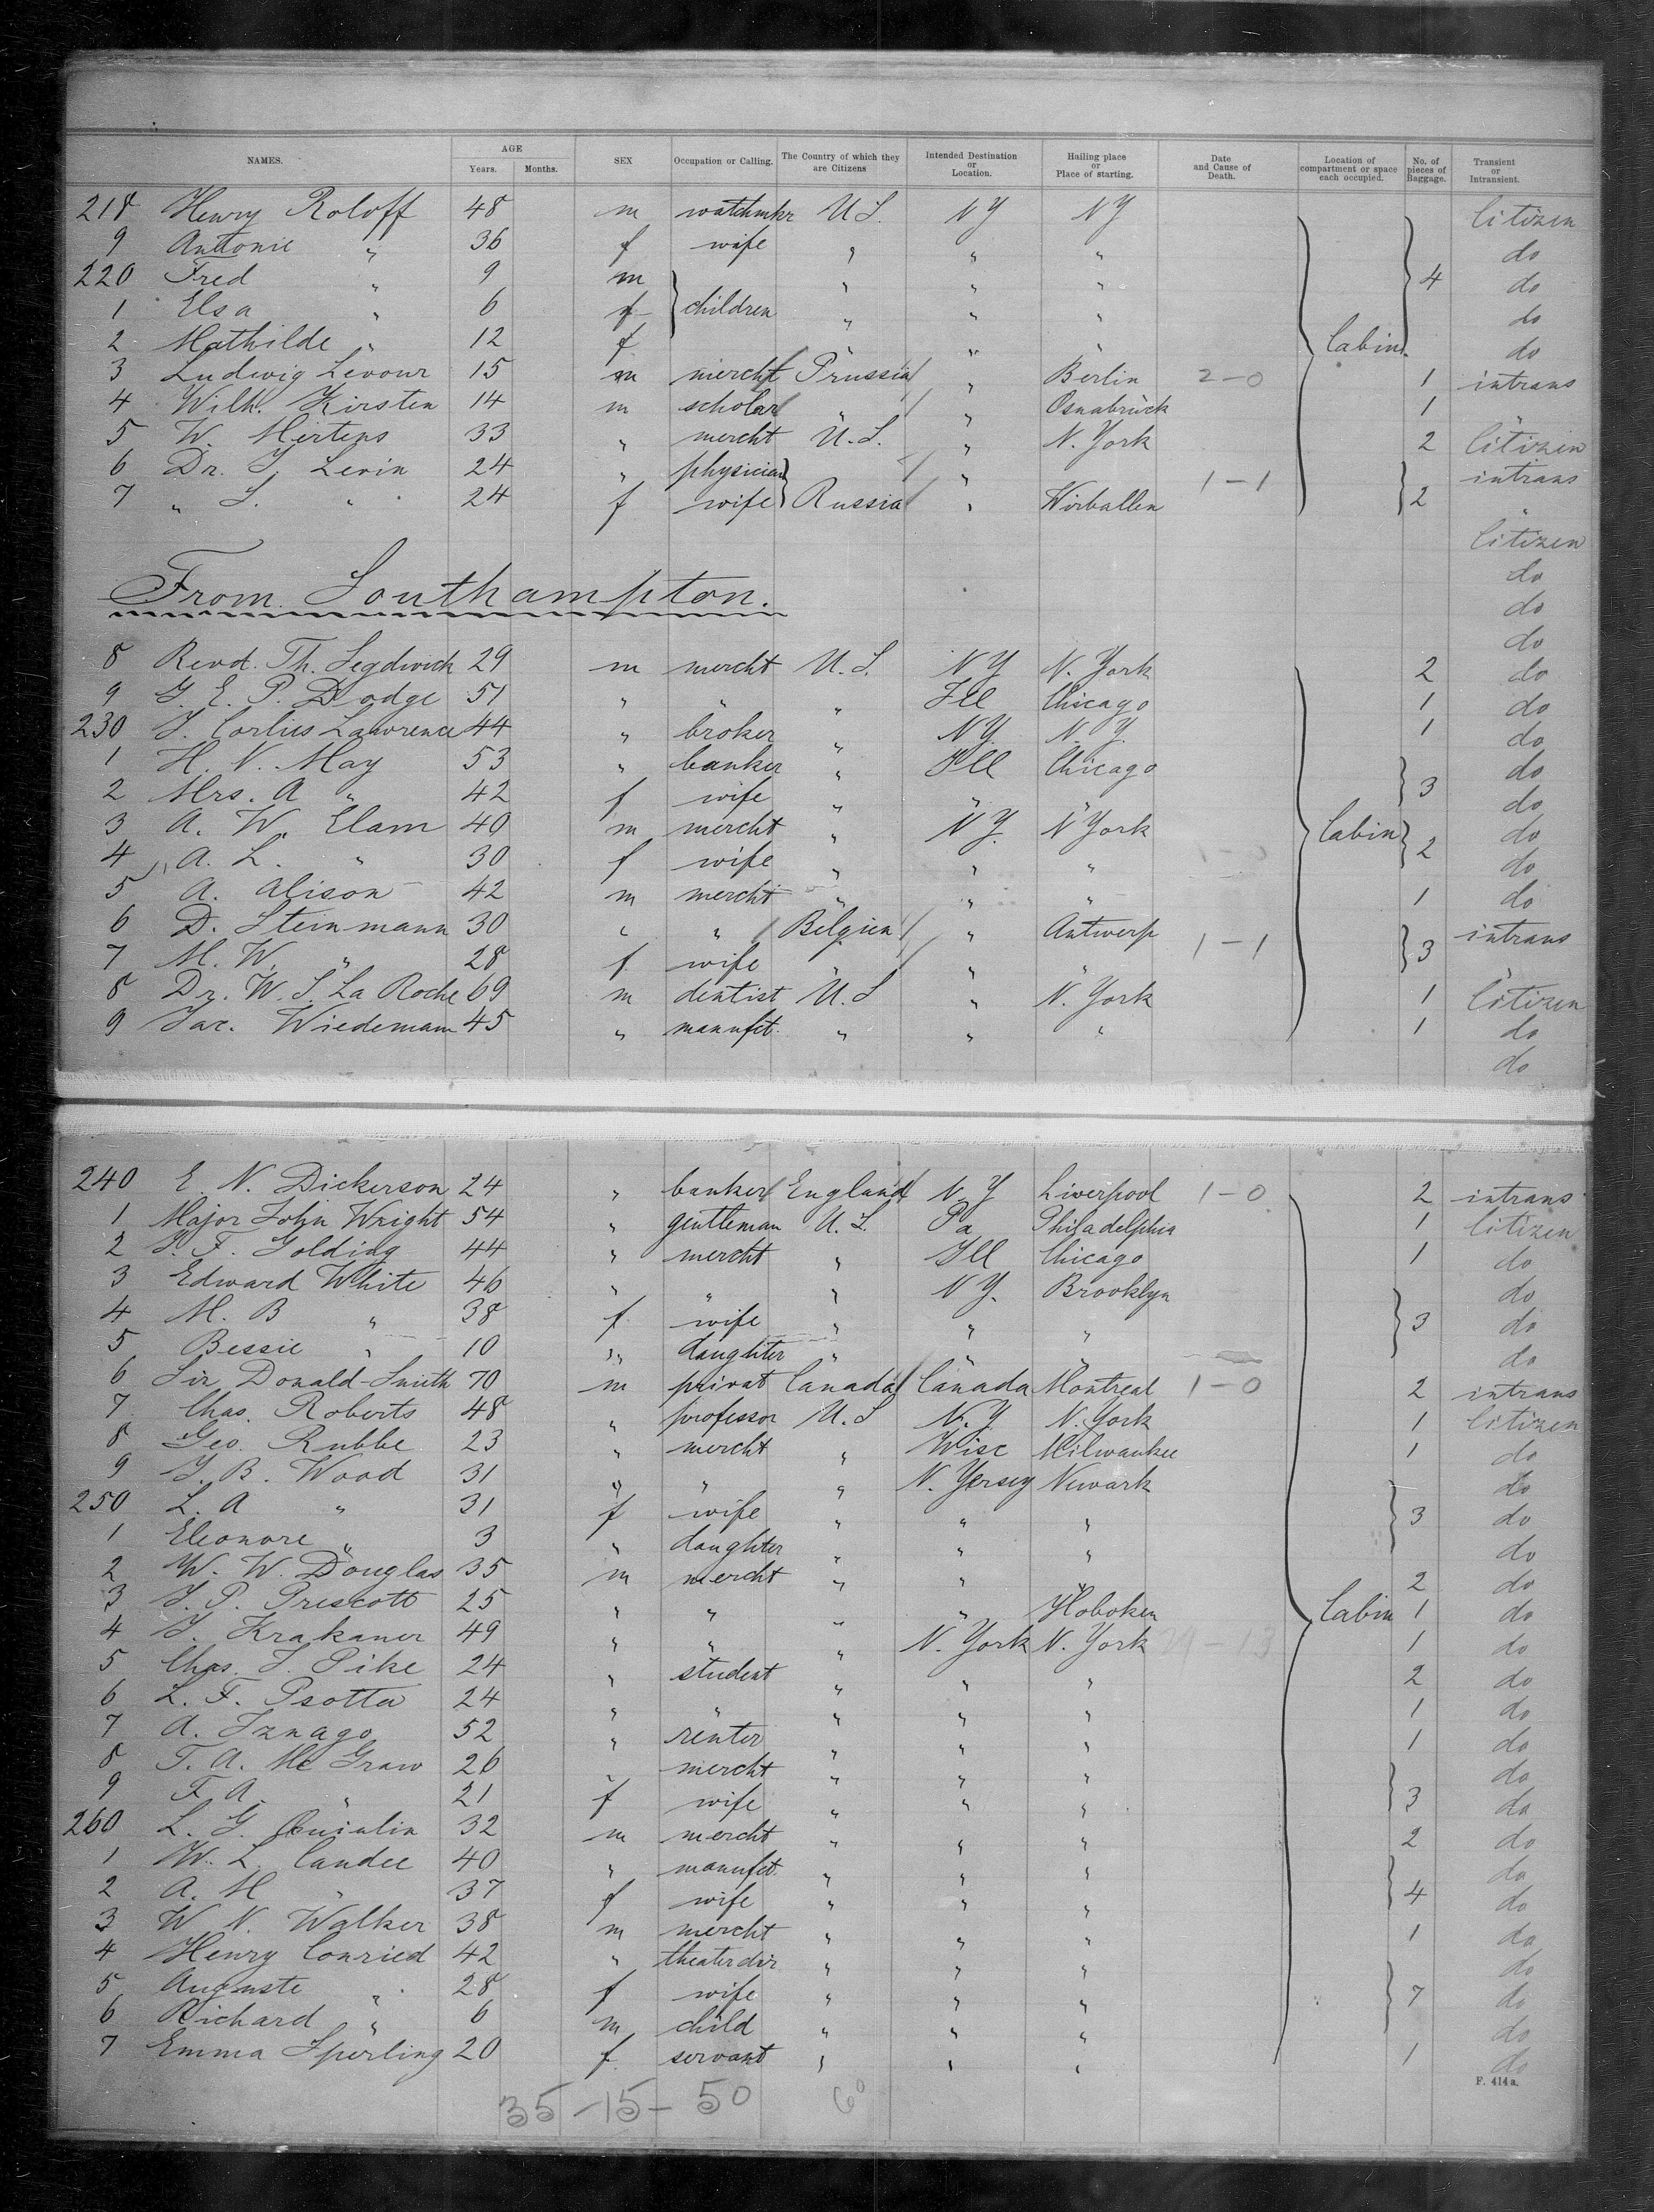 NAMES. AGE Years. Months. SEX Occupation or Calling. The Country of which they are Citizens Intended Destination or Location. Hailing place or Place of starting. Date and Cause of Death. Location of compartment or space each occupied. No. of pieces of Baggage. Transient or Intransient.
218 Henry Roloff 48 m watchmkr U.S. NY NY Citizen
9 Antonie " 36 f wife " " " do
220 Fred " 9 m " " " 4 do
1 Elsa " 6 f children " " " do
2 Mathilde " 12 f " " " Cabin do
3 Ludwig Levour 15 m mercht Prussia " Berlin 2-0 1 intrans
4 Wilh. Kirsten 14 m scholar " " Osnabrück 1 "
5 W. Mertens 33 " mercht U.S. " N. York 2 Citizen
6 Dr. J. Levin 24 " physician " intrans
7 " S. " 24 f wife Russia " Wirballen 1-1 2 "
Citizen
do
From Southampton.
do
do
8 Revd. Th. Segdwick 29 m mercht U.S. NY N. York 2 do
9 G. E. P. Dodge 51 " " " Ill Chicago 1 do
230 J. Corlies Lawrence 44 " broker " NY. N.Y. 1 do
1 H. N. May 53 " banker " Ill Chicago do
2 Mrs. A " 42 f wife " " " 3 do
3 A. W. Elam 40 m mercht " NY. N York Cabin do
4 A. L. " 30 f wife " " " 2 do
5 A. Alison 42 m mercht " " " 1 do
6 D. Steinmann 30 " " Belgien " Antwerp intrans
7 M. W. " 28 f wife " " " 1-1 3 "
8 Dr. W. S. La Roche 69 m dentist U.S " N. York 1 Citizen
9 Jac. Wiedemann 45 " manufct. " " " 1 do
do
240 E. N. Dickerson 24 " banker England N.Y Liverpool 1-0 2 intrans
1 Major John Wright 54 " gentleman U.S. Pa Philadelphia 1 Citizen
2 S. F. Golding 44 " mercht " Ill Chicago 1 do
3 Edward White 46 " " " NY. Brooklyn do
4 M. B " 38 f wife " " " 3 do
5 Bessie " 10 " daughter " " " do
6 Sir Donald Smith 70 m privat Canada Canada Montreal 1-0 2 intrans
7 Chas. Roberts 48 " professor U.S N.Y N. York 1 Citizen
8 Geo. Rubbe 23 " mercht " Wisc Milwaukee 1 do
9 J. B. Wood 31 " " " N. Yersey Newark do
250 L. A " 31 f wife " " " 3 do
1 Eleonore " 3 " daughter " " " do
2 W. W. Douglas 35 m mercht " " " 2 do
3 J. P. Prescott 25 " " " " Hoboken Cabin 1 do
4 J. Krakauer 49 " " " N. York N. York 1 do
5 Chas. S. Pike 24 " student " " " 2 do
6 L. F. Psotta 24 " " " " " 1 do
7 A. Iznago 52 " renter " " " 1 do
8 T. A. Mc Graw 26 " mercht " " " do
9 F. A. " 21 f wife " " " 3 do
260 L. G. Quinlin 32 m mercht " " " 2 do
1 W. L. Candee 40 " manufct. " " " do
2 A. M " 37 f wife " " " 4 do
3 W. N. Walker 38 m mercht " " " 1 do
4 Henry Conried 42 " theater dir " " " do
5 Auguste " 28 f wife " " " 7 do
6 Richard " 6 m child " " " do
7 Emma Sperling 20 f servant " " " 1 do
F. 414a.
35-15-50